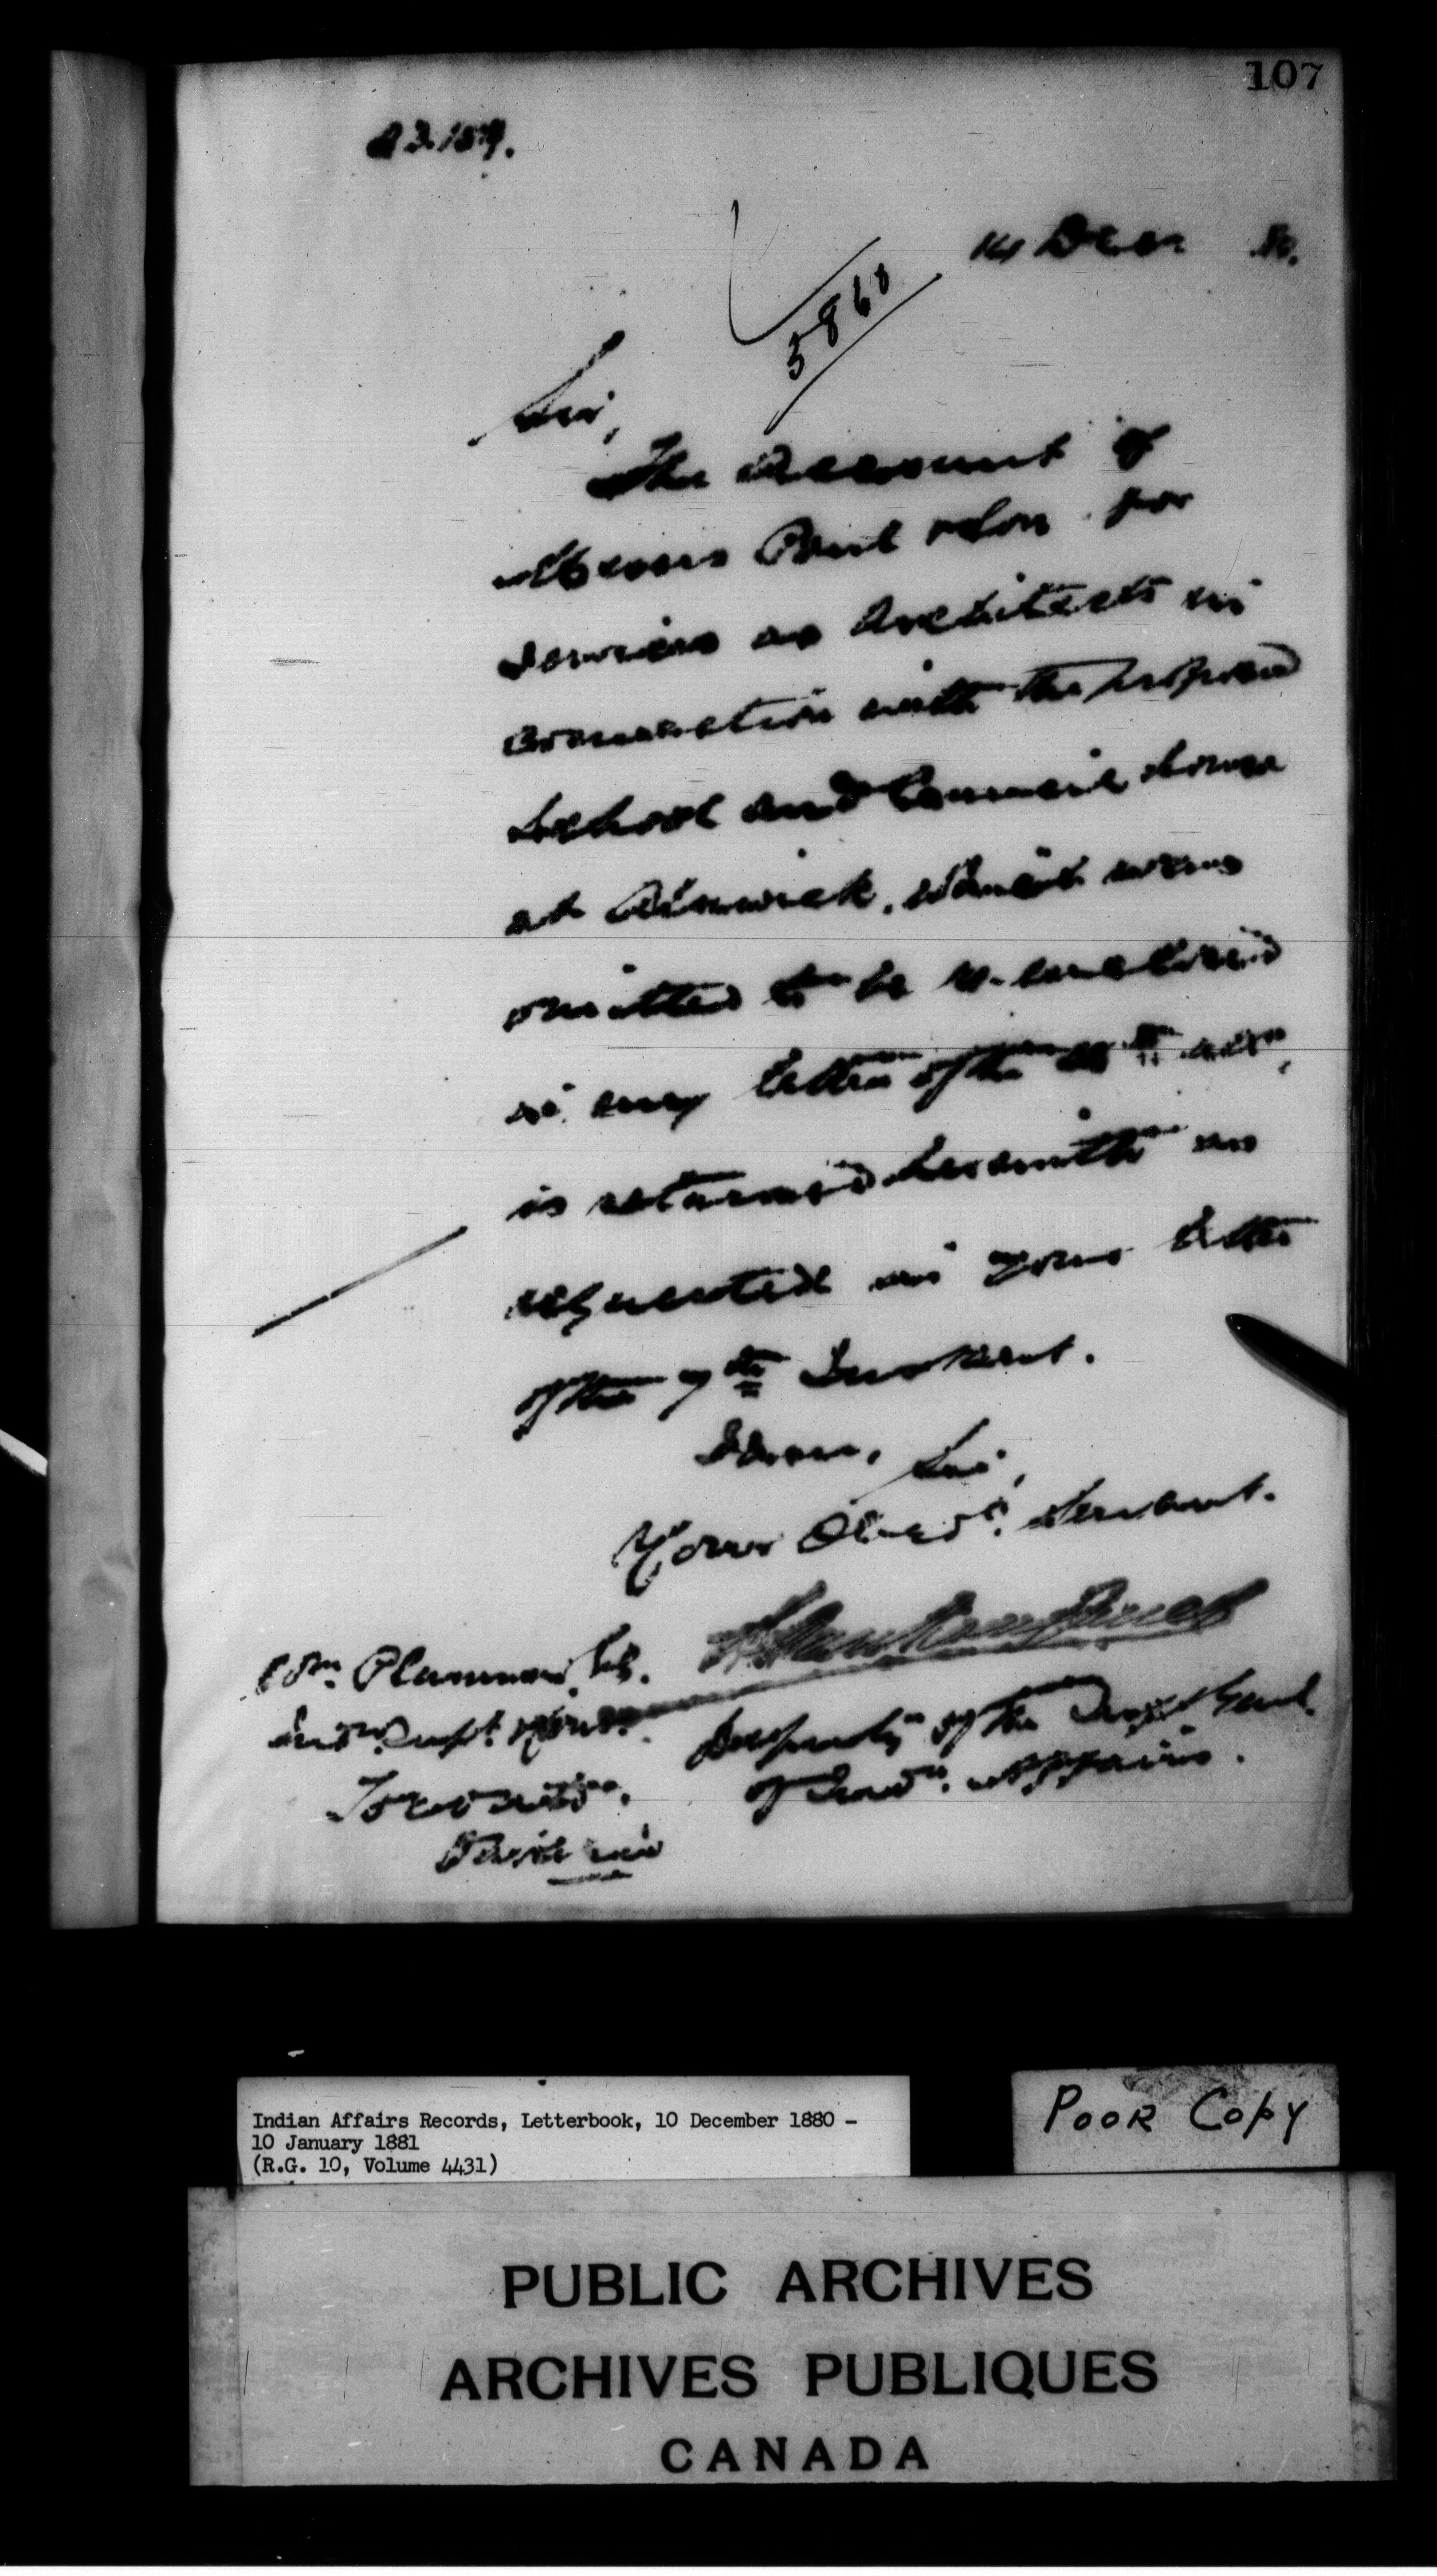 107
14 Decr 80.
5860
Sir,
The Account of
Messrs Paul & Son for
services as Architects in
connection with the proposed
School and Council House
at Alnwick, which was
omitted to be re-enclosed
in my letter of the
is returned herewith as
requested in your letter
of the 7th Instant.
I am, Sir,
Your Obedt. Servant.
Wm. Plummer, Esq.
Indn. Supt. &
Toronto,
Ontario
Deputy of the Supt Genl.
of Indn. Affairs.
Indian Affairs Records, Letterbook, 10 December 1880 -
10 January 1881
(R.G. 10, Volume 4431)
POOR COPY
PUBLIC ARCHIVES
ARCHIVES PUBLIQUES
CANADA